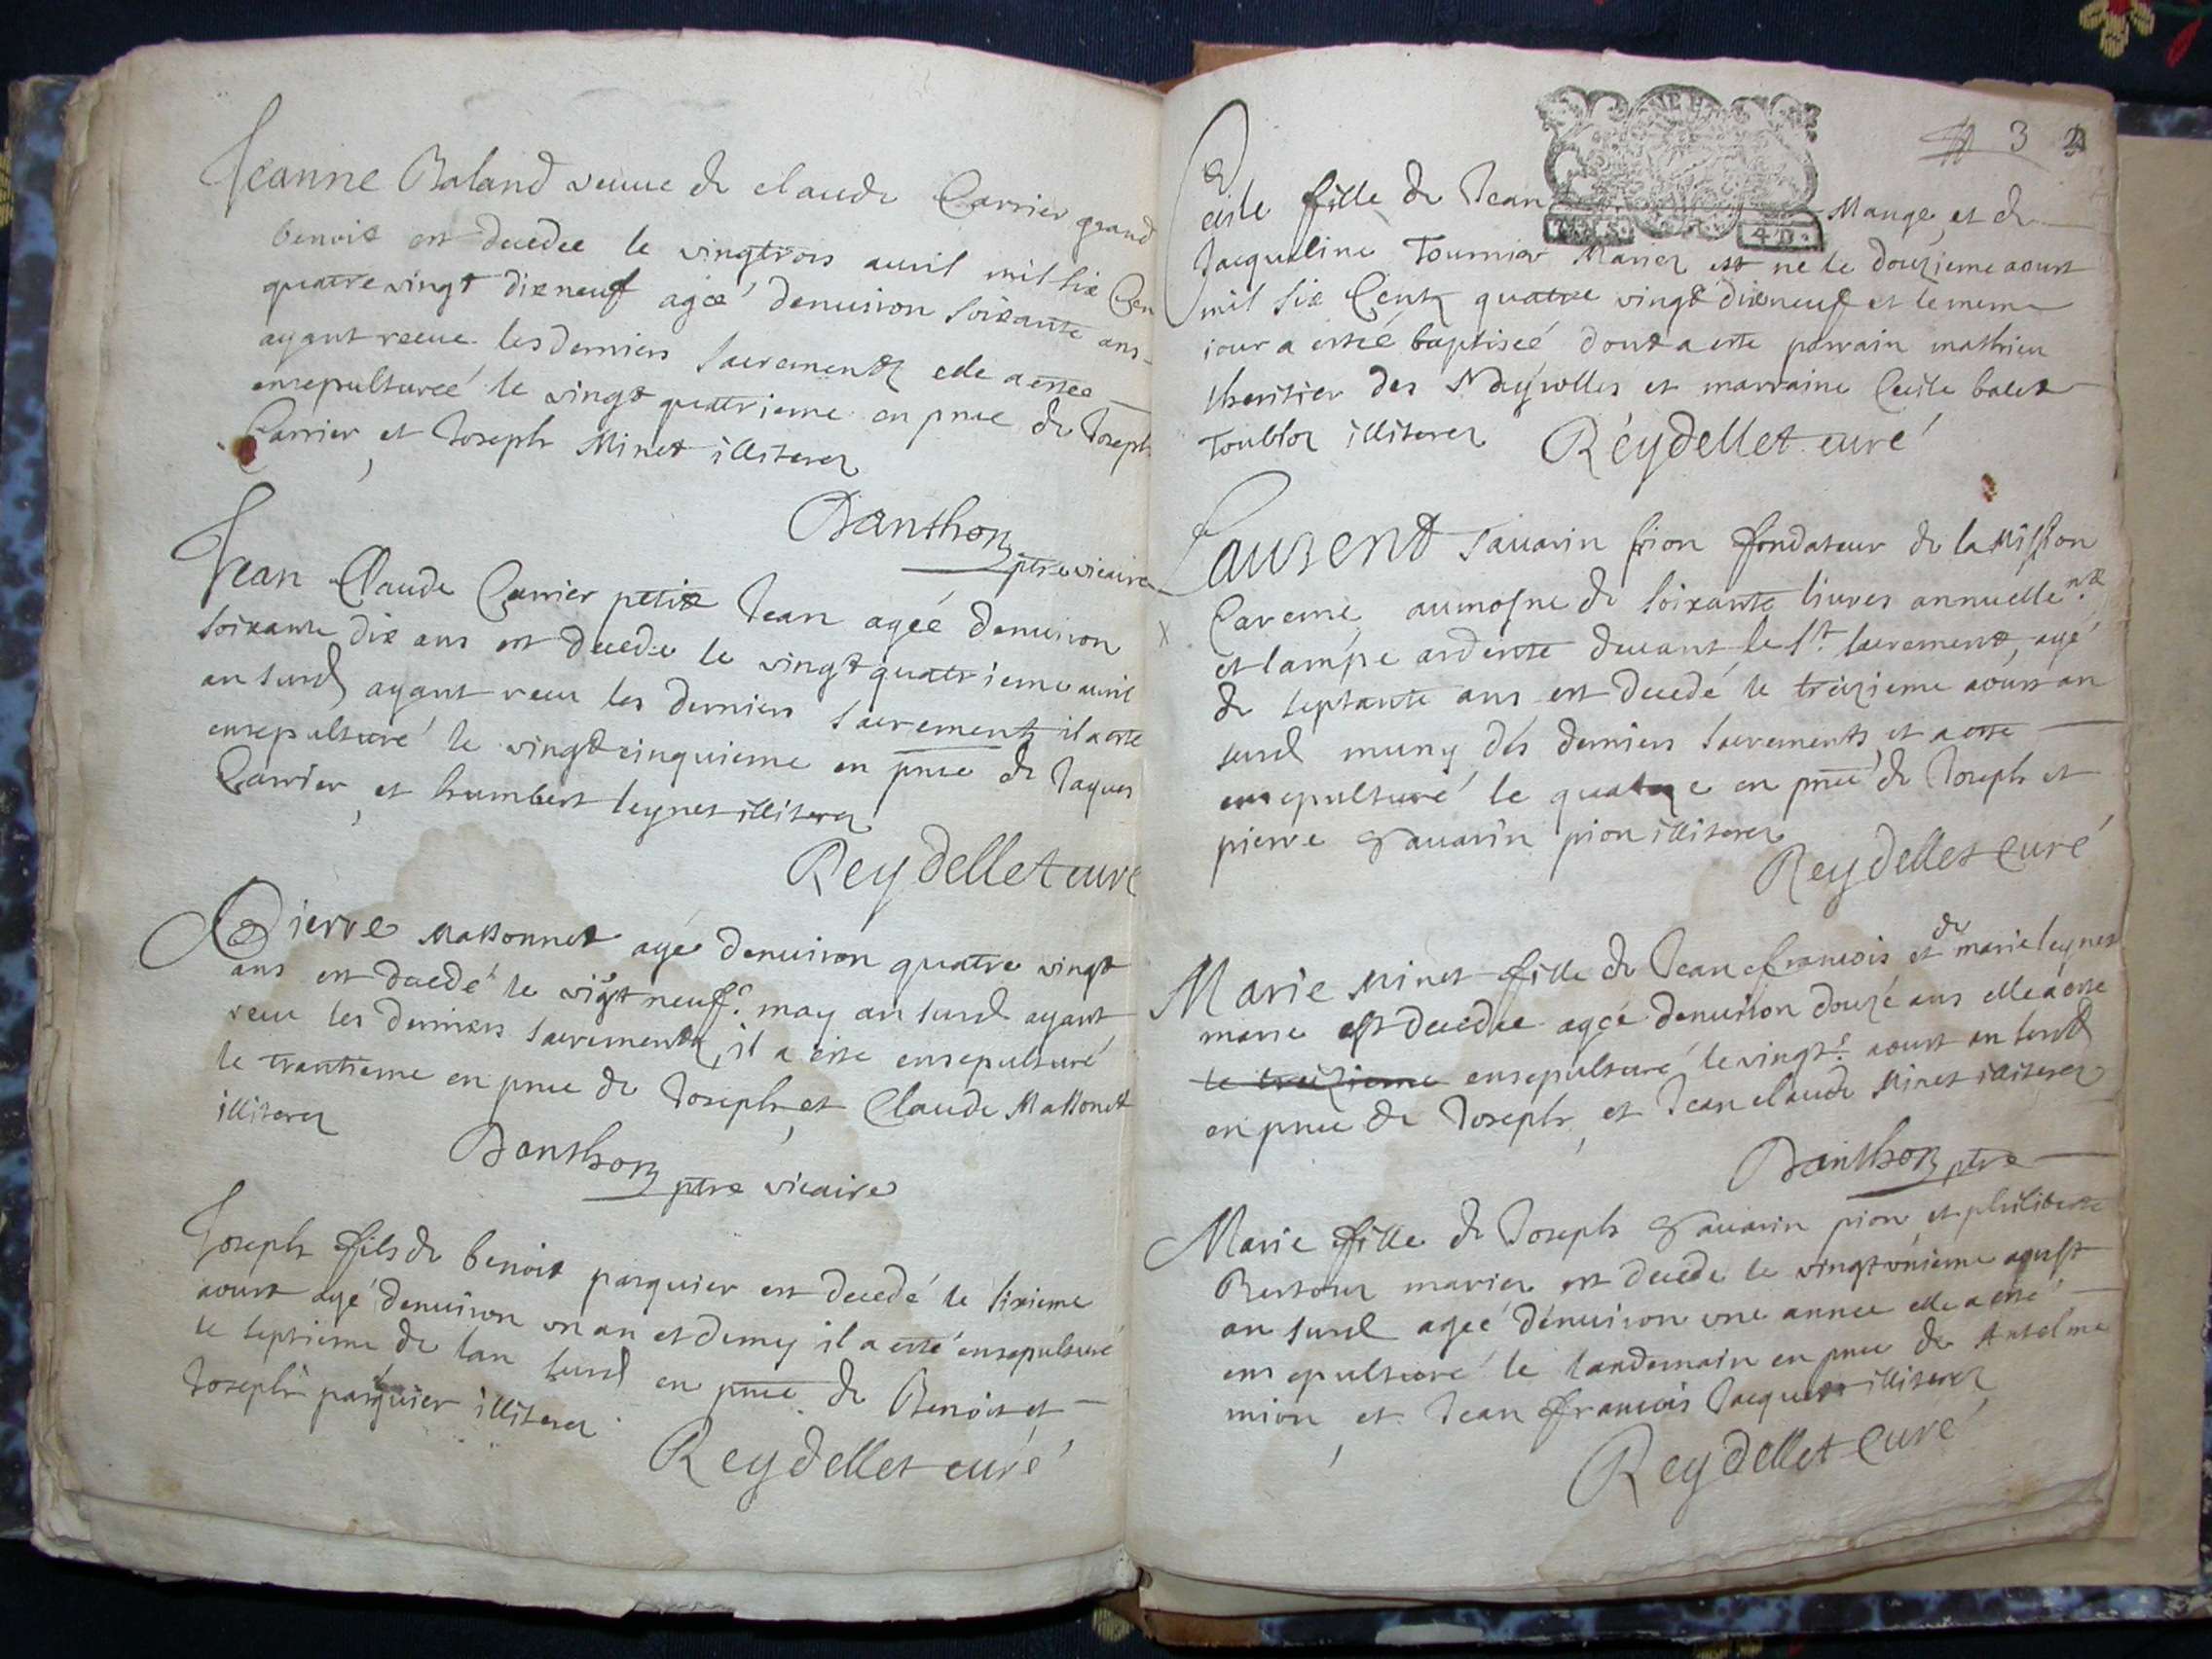 Jeanne Baland veuue de claude Carrier grand
benoit est decedee le vingtrois auril mil six Cen
quatre vingt dixneuf agée denuiron soixante ans
ayant receue les derniers sacrements elle a estée
ensepulturée le vingt quatrieme en pnce de Joseph
Carrier, et Joseph Minet illiterez
Danthon ptre vicaire
Jean Claude Carrier petit Jean agée denuiron
soixante dix ans est decede le vingt quatrieme auril
an susd ayant receu les derniers sacrements il a esté
ensepulturé le vingt cinquieme en pnce de Jaques
Carrier, et humbert leynet illiterez
Reydellet curé
Pierre Massonnet agé denuiron quatre vingt
ans est decedé le vigt neuf.e may an susd ayant
receu les derniers sacrements, il a esté ensepulturé
le trantieme en pnce de Joseph, et Claude Massonet
illiterez
Danthon ptre vicaire
Joseph fils de benoit pasquier est decedé le sixieme
aoust agé denuiron un an et demy il a esté ensepulturé
le septieme de lan susd en pnce de Benoit et
Joseph pasquier illiterez
Reydellet curé
3
Cecile fille de Jean Mange, et de
Jacqueline Tournier Mariez est né le douzieme aoust
mil six Centz quatre vingt dixneuf et le meme
jour a estéé baptiséé dont a esté parrain mathieu
lheritier des Nayrolles et marraine Cecile balet
Toublor illiterez Reydellet curé
Laurent Sauarin pion fondateur de la Mission
Careme, aumosne de soixante liures annuelle.nt
x et lampe ardente deuant le s.t sacrement, agé
de septante ans est decedé le treizieme aoust an
susd muny des derniers sacrements, et a esté
ensepulturé le quatorze en pnce de Joseph et
pierre Sauarin pion illiterez
Reydellet curé
de
Marie Minet fille de Jean francois et marie leynet
marie est decedee agée denuiron douze ans elle a esté
le treizieme ensepulturé le vingt.e aoust an susd
en pnce de Joseph, et Jean claude Minet illiterez
Danthon ptre
Marie fille de Joseph Sauarin pion et philiberte
mariez est decede le vingt unieme agust
an susd agéé denuiron une annee elle a esté
ensepulturé le landemain en pnce de Anselme
mion, et Jean francois Jacquet illiterez
Reydellet curé